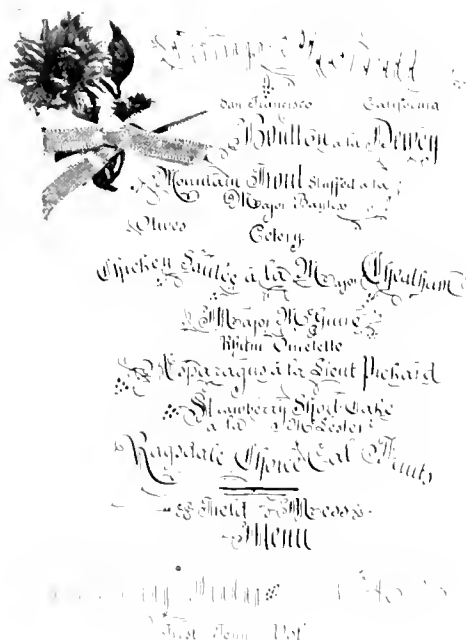 San Francisco California
Bouillon a la Dewey
Mountain Trout Stuffed a la
Major Bayliss
Olives
Celery
Chicken Sautée à la Major Cheatham
Major McGuire
Rhum Omelette
Asparagus à la Lieut Pichard
Strawberry Short Cake
a la McLester
Ragsdale Choice Cal Fruits
Field Mess
Menu
First Tenn Vol